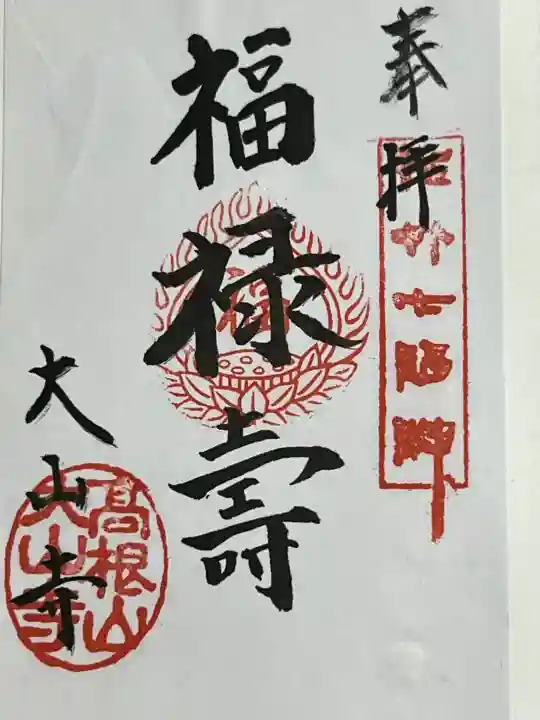 奉拝
福禄壽
大山寺
高根山
大山寺